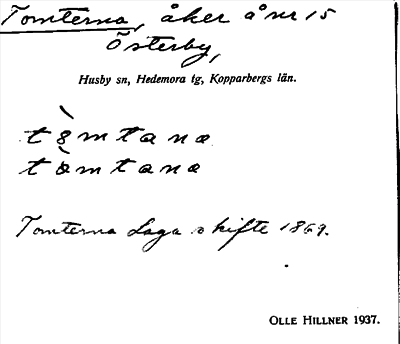 Tomterna, åker å nr 15
Österby,
Husby sn, Hedemora tg, Kopparbergs län.
tòmtana
tòmtana
Tomterna Laga skifte 1869.
OLLE HILLNER 1937.